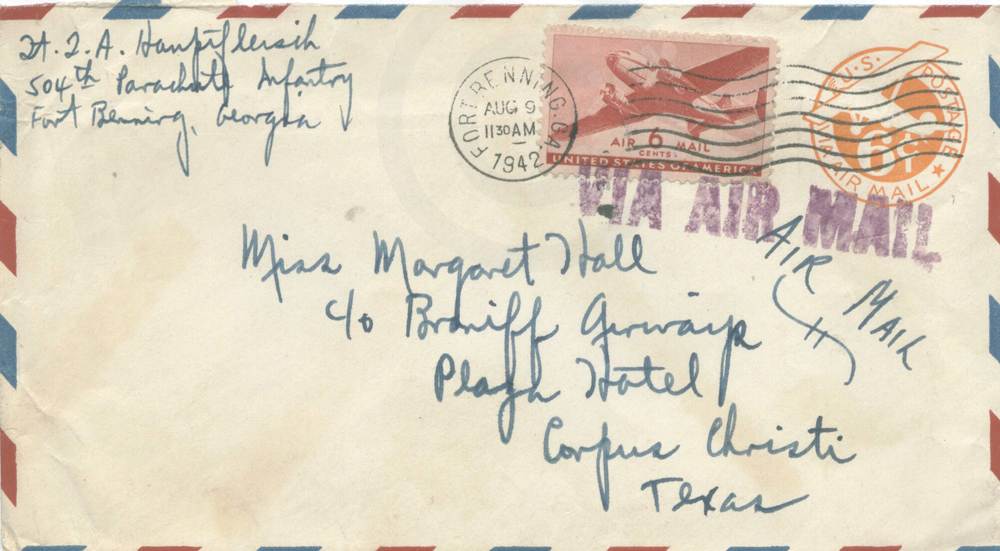 Lt. L. A. Hauptfleisch
504th Parachute Infantry
Fort Benning, Georgia
FORT BENNING, GA.
AUG 9
11 30 AM
1942
AIR 6 MAIL
CENTS
UNITED STATES OF AMERICA
U.S. POSTAGE
6¢
VIA AIR MAIL
VIA AIR MAIL
AIR MAIL
Miss Margaret Hall
c/o Braniff Airways
Plaza Hotel
Corpus Christi
Texas